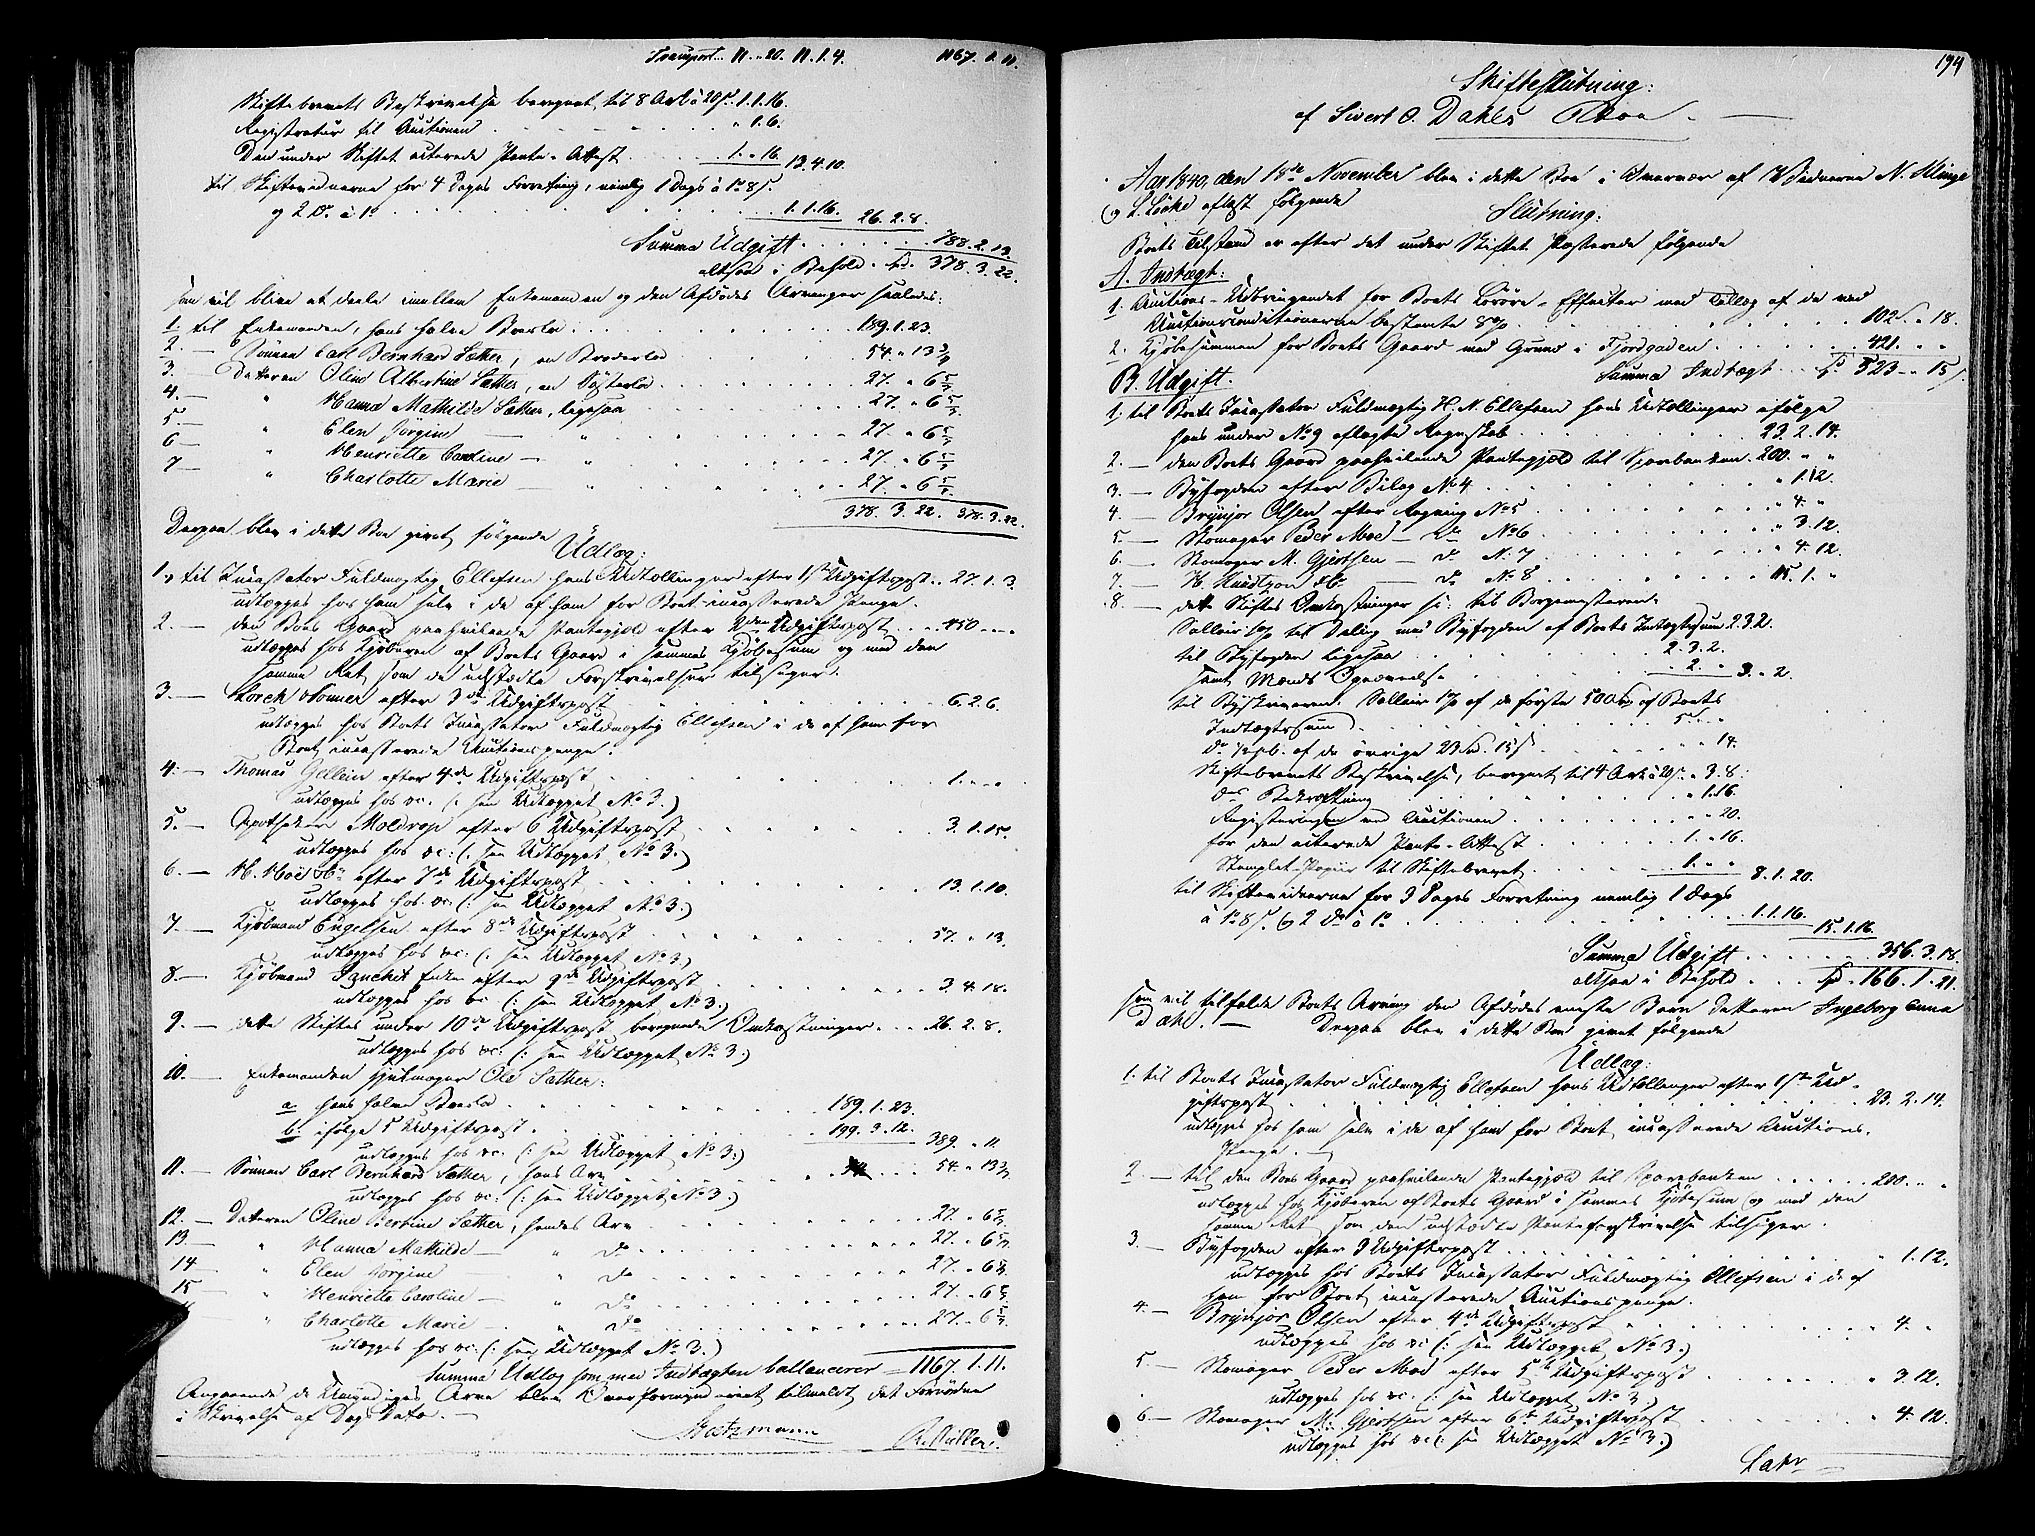 Transport N. 20. N. 1. 4. 1167. 1. 11.
Skiftebrevets Beskrivelse beregnet til 8 Ark à 20 s. 1.1.16.
Registratur til Auctionen " 1.6.
Den under Skiftet citerede Pante-Attest 1. " 16. 13.4.10.
til Skiftevidnerne for 4 Dages Forretning, nemlig 1 Dags à 1 8 s.
og 2 D. à 1 1.1.16. 26.2.8.
Summa Udgift 788.2.13.
altsaa i Behold Sp. 378.3.22.
som vil blive at deele imellem Enkemanden og den Afdødes Arvinger saaledes:
1. til Enkemanden, hans halve Boeslod 189.1.23.
2. — Sønnen Carl Bernhard Sæther, en Broderlod 54. " 13 3/7
3. — Datteren Oline Albertine Sæther, en Søsterlod 27. " 6 5/7
4. — " Hanna Mathilde Sæther, ligesaa 27. " 6 5/7
5. — " Elen Jørgine — " 27. " 6 5/7
6 — " Henriette Caroline — " 27. " 6 5/7
7 — " Charlotte Marie — " 27. " 6 5/7
378. 3. 22. 378. 3. 22.
Derpaa blev i dette Boe givet følgende
Udlæg:
1. til Incassator Fuldmægtig Ellefsen hans Udtællinger efter 1ste Udgiftspost 27.1.3
udlægges hos ham selv i de af ham for Boet incasserede Penge.
2. — den Boets Gaard paahvilende Pantegjæld efter 2den Udgiftspost 450 " "
udlægges hos Kjøberen af Boets Gaard i sammes Kjøbesum og med den
samme Ret som de udstædte Forskrivelser tilsiger.
3. — Storck efter 3de Udgiftspost 6.2.6.
udlægges hos Boets Incassator Fuldmægtig Ellefsen i de af ham for
Boet incasserede Auctionspenge.
4. — Thomas efter 4de Udgiftspost 1. " "
udlægges hos &c: (: see Udlægget No 3.)
5. — Apotheker Moldrup efter 6 Udgiftspost 3.1.15.
udlægges hos &c: (: see Udlægget No 3.)
6 — efter 7de Udgiftspost 13.1.10.
udlægges hos &c: (: see Udlægget No 3.)
7 — Kjøbmand Engelsen efter 8de Udgiftspost 57. " 13.
udlægges hos &c: (: see Udlægget No 3.)
8 — Kjøbmand Enke efter 9de Udgiftspost 3.4.18.
udlægges hos &c (: see Udlægget No 3.)
9. — dette Skiftes under 10de Udgiftspost beregnede Omkostninger 26.2.8.
udlægges hos &c: (: see Udlægget No 3.)
10. — Enkemanden Hjulmager Ole Sæther:
a hans halve Boeslod 189.1.23.
b. ifølge 5 Udgiftspost 199.3.12. 389. " 11
udlægges hos &c: (: see Udlægget No 3.)
11. — Sønnen Carl Bernhard Sæther, hans Arv 54. " 13 3/7
udlægges hos &c: (: see Udlægget No 3.)
12. — Datteren Oline Bertine Sæther, hendes Arv 27. " 6 5/7
13 — " Hanna Mathilde — " do 27. " 6 5/7
14 " Elen Jørgine — " do 27. " 6 5/7
15 " Henriette Caroline — " do 27. " 6 5/7
" Charlotte Marie — " do 27. " 6 5/7
udlægges hos &c: (: see Udlægget No 3.)
Summa Udlæg som med Indtægten ballancerer = 1167.1.11.
Angaaende de Umyndiges Arve blev Overformynderiet tilmeldt det Fornødne
i Skrivelse af Dags Dato. —
194
Skifteslutning:
af Sivert O. Dahls Boe. —
Aar 1840, den 18de November blev i dette Boe i Overvær af Vidnerne N. Klinge
og L. Løcke aflæst følgende
Slutning:
Boets Tilstand er efter det under Skiftet Passerede følgende
A. Indtægt:
1. Auctions-Udbringendet for Boets Løsøre-Effecter med Tillæg af de ved
Auctionsconditionerne bestemte 8% 102. " 18.
2. Kjøbesummen for Boets Gaard med Grund i Fjordgaden 421. " "
Summa Indtægt Sp 523 " 15 s.
B. Udgift.
1. til Boets Incassator Fuldmægtig H. N. Ellefsen hans Udtællinger ifølge
hans under No 9 aflagte Regnskab 23.2.14.
2. — den Boets Gaard paahvilende Pantegjæld til Sparebanken 200. " "
3. — Byfogden efter Bilag No 4 " 1.12.
4. — Brynjor Olsen efter Regning No 5 " 4. "
5 — Skomager Peder Moe — Do No 6 " 3.12.
6. — Skomager M. Gjertsen — do N. 7 " 4.12.
7. — H. Knudtzon — do No 8 15.1. "
8. — dette Skiftes Omkostninger s: til Borgemesteren
Sallair til Deling med Byfogden af Boets Indtægtssum 2.3.2.
til Byfogden ligesaa 2.3.2.
samt Mænds Opnævnelse " 2. " 3. " 2.
til Byskriveren: Sallair 1% af de første 500 Sp af Boets
Indtægtssum 5 " "
do ½ pC. af de øvrige 23 Sp. 15 s " " 14.
Skiftebrevets Beskrivelse, beregnet til 4 Ark à 20 s. " 3.8.
des Bekræftning " 1.16.
Registeringen ved Auctionen " " 20.
for den citerede Pante-Attest 1. " 16.
Stemplet Papir til Skiftebrevet 1. " " 8.1.20.
til Skiftevidnerne for 3 Dages Forretning nemlig 1 Dags
à 1 8 s. og 2 do à 1 1.1.16. 15.1.16.
Summa Udgift 356.3.18.
altsaa i Behold Sp 166.1.21.
som vil tilfalde Boets Arving den Afdødes eneste Barn Datteren Ingeborg Anna
Dahl. — Derpaa blev i dette Boe givet følgende
Udlæg:
1. til Boets Incassator Fuldmægtig Ellefsen hans Udtællinger efter 1ste Ud-
giftspost 23.2.14.
udlægges hos ham selv i de af ham for Boet incasserede Auctions-
Penge. —
2. — til den Boets Gaard paahvilende Pantegjæld til Sparebanken 200. " "
udlægges hos Kjøberen af Boets Gaard i sammes Kjøbesum og med den
samme Ret som den udstædte Panteforskrivelse tilsiger.
3. — Byfogden efter 3 Udgiftspost " 1.12.
udlægges hos Boets Incassator Fuldmægtig Ellefsen i de af
ham for Boet incasserede Auctionspenge.
4. — Brynjor Olsen efter 4de Udgiftspost " 4. "
udlægges hos &c (: see Udlægget No 3.)
5. — Skomager Peder Moe efter 5te Udgiftspost " 3.12.
udlægges hos &c: (: see Udlægget No 3.)
6. — Skomager M. Gjertsen efter 6te Udgiftspost " 4.12.
udlægges hos &c (: see Udlægget No 3.)
Latr